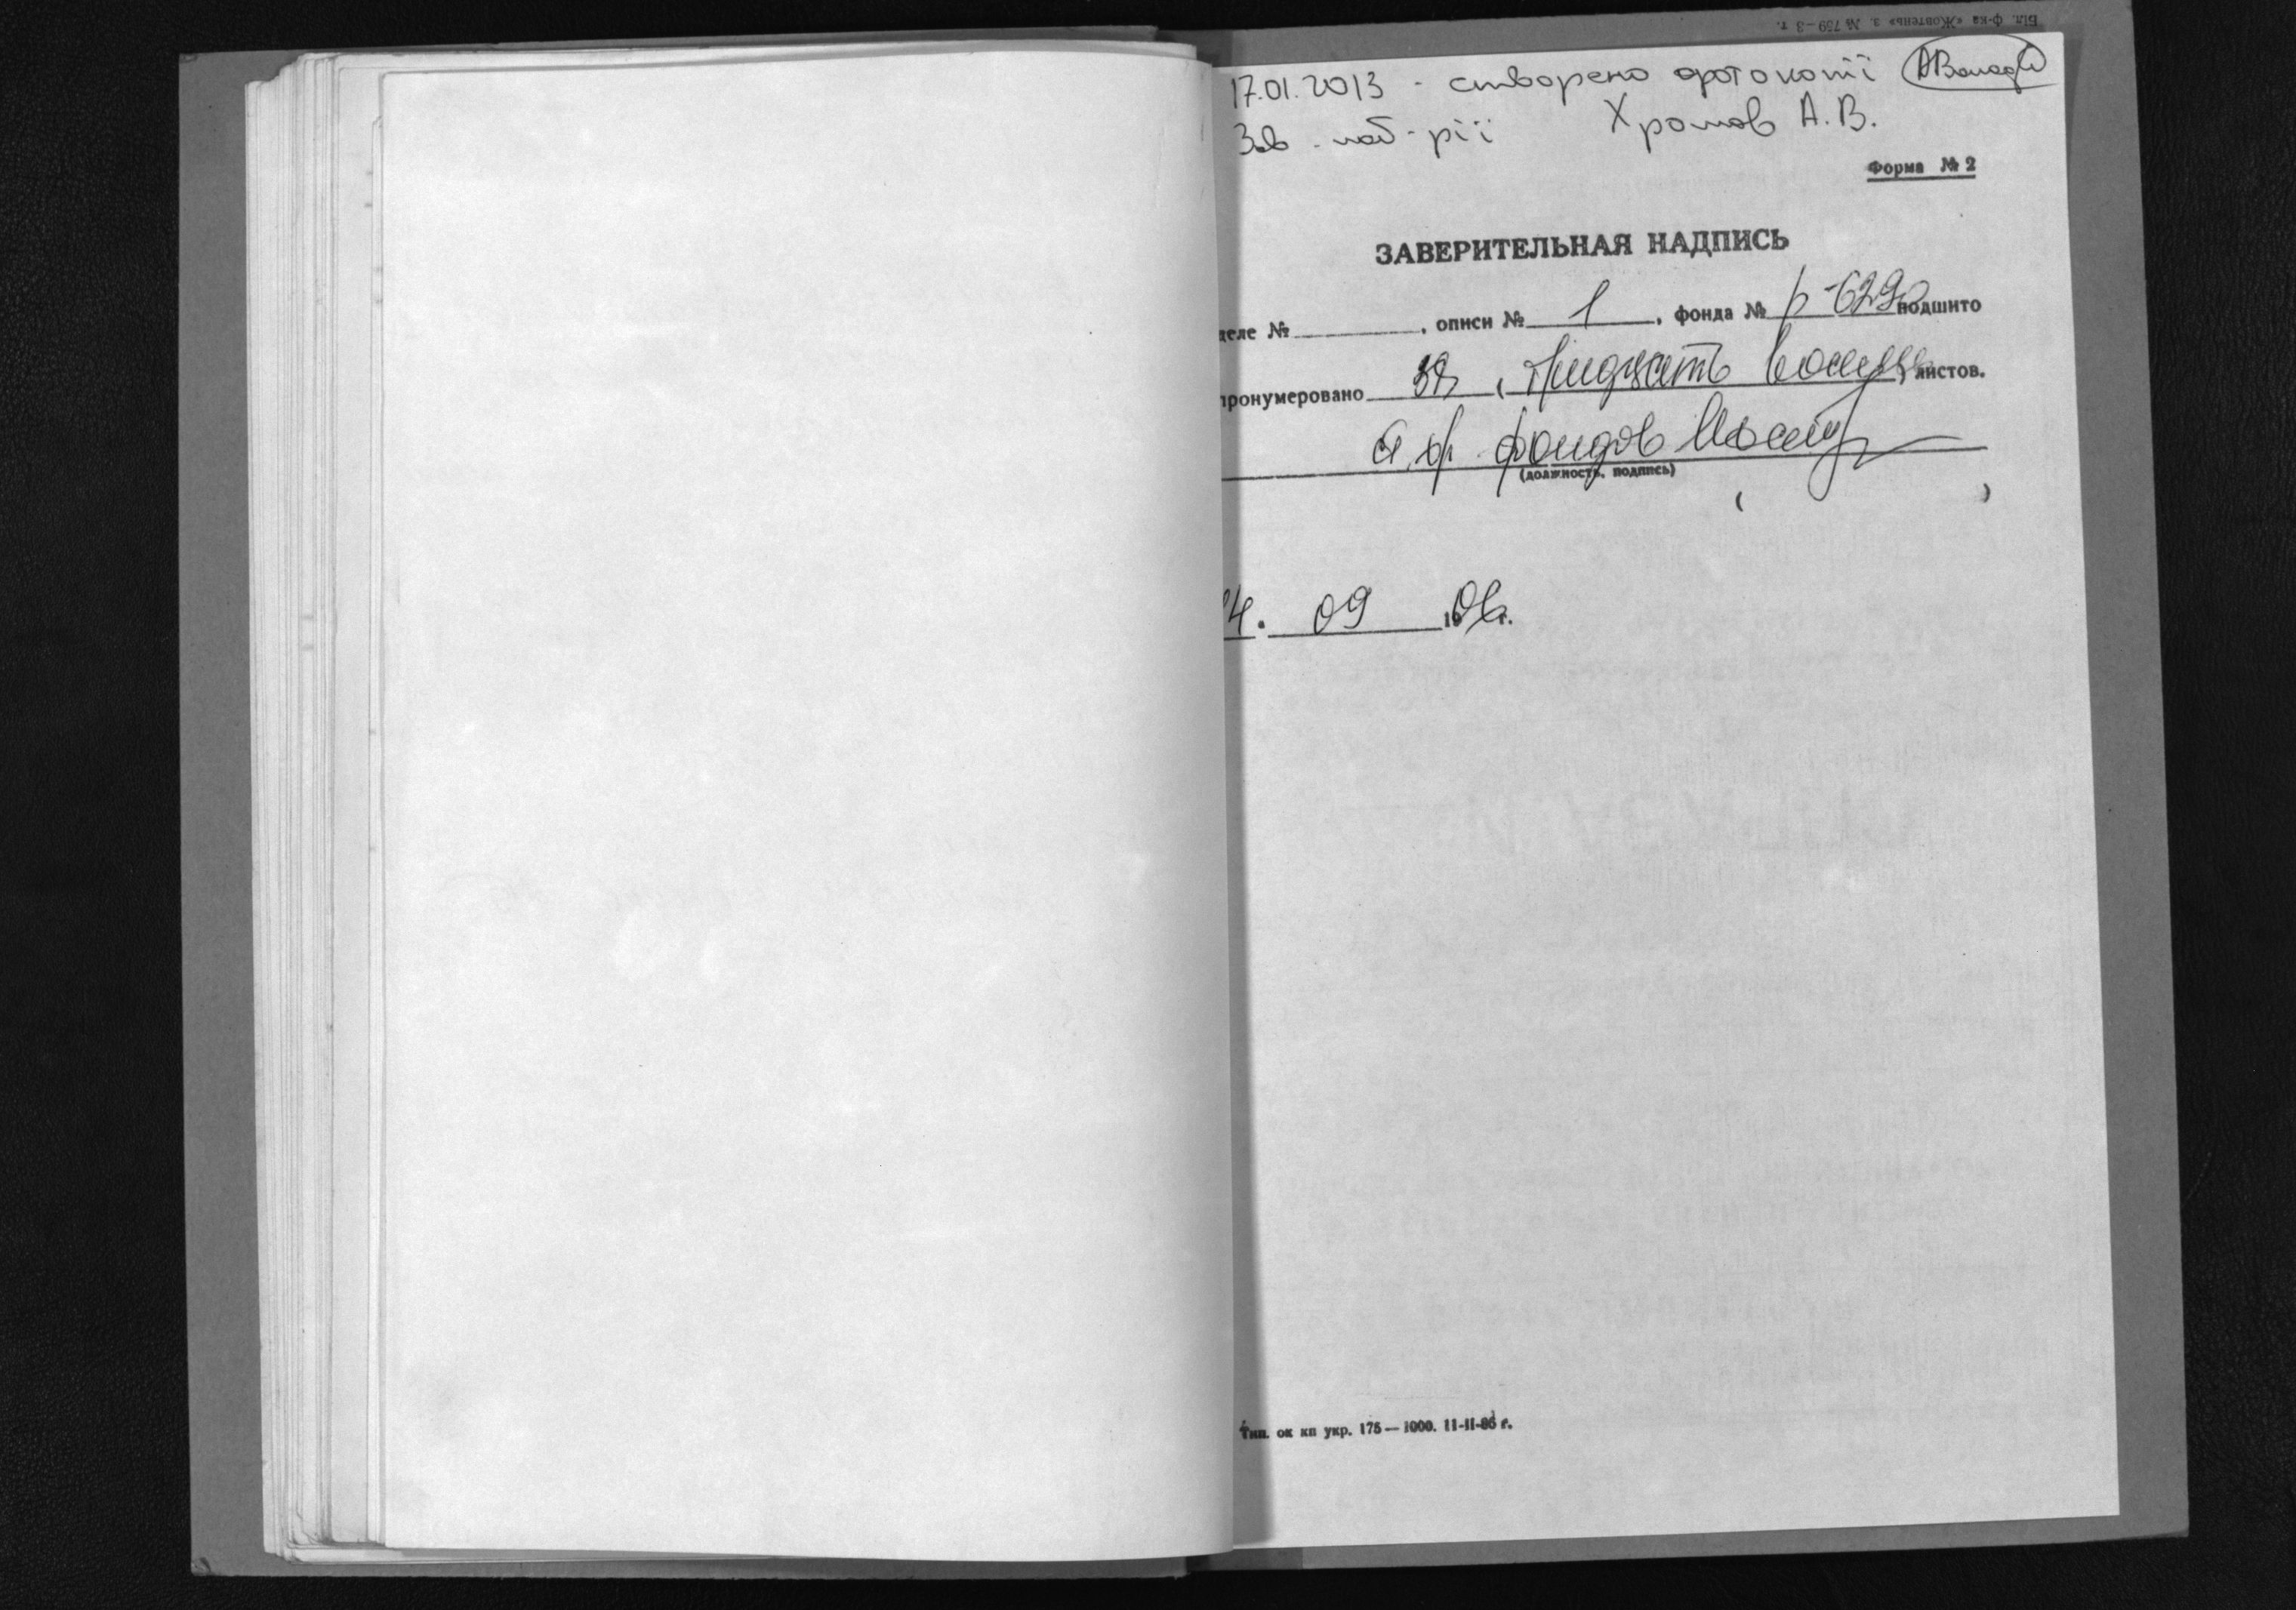 Біл. ф-ка «Жовтень» з. № 759—3 т.
17.01.2013 - створено фотокопії
Зав. лаб-рії Хромов А.В.
Форма № 2
ЗАВЕРИТЕЛЬНАЯ НАДПИСЬ
деле № , описи № 1 , фонда № р-6290 подшито
пронумеровано 38 ( тридцать восемь ) листов.
фондов
(должность, подпись)
( )
4. 09 06 г.
Тип. ок кп укр. 175—1000. 11-II-86 г.